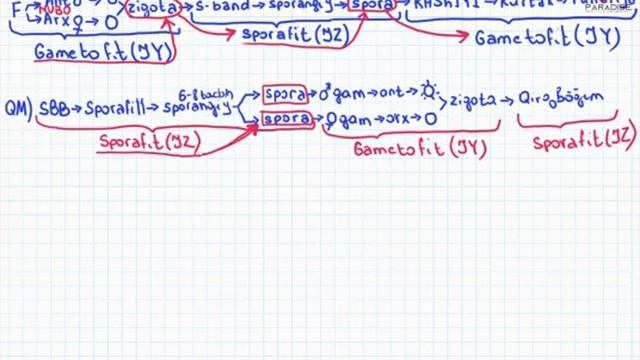 PARADISE
F
Arx ♀→O zigota s-band→sporangiy→spora
Gametofit(JY) Sporafit(JZ) Gametofit(JY)
6-8 tachn
QM) SBB→Sporafill→sporangiy spora→♂gam→ant→ zigota→Qirqbo'g'im
spora→♀gam→arx→O
Sporafit(JZ) Gametofit(JY) Sporafit(JZ)